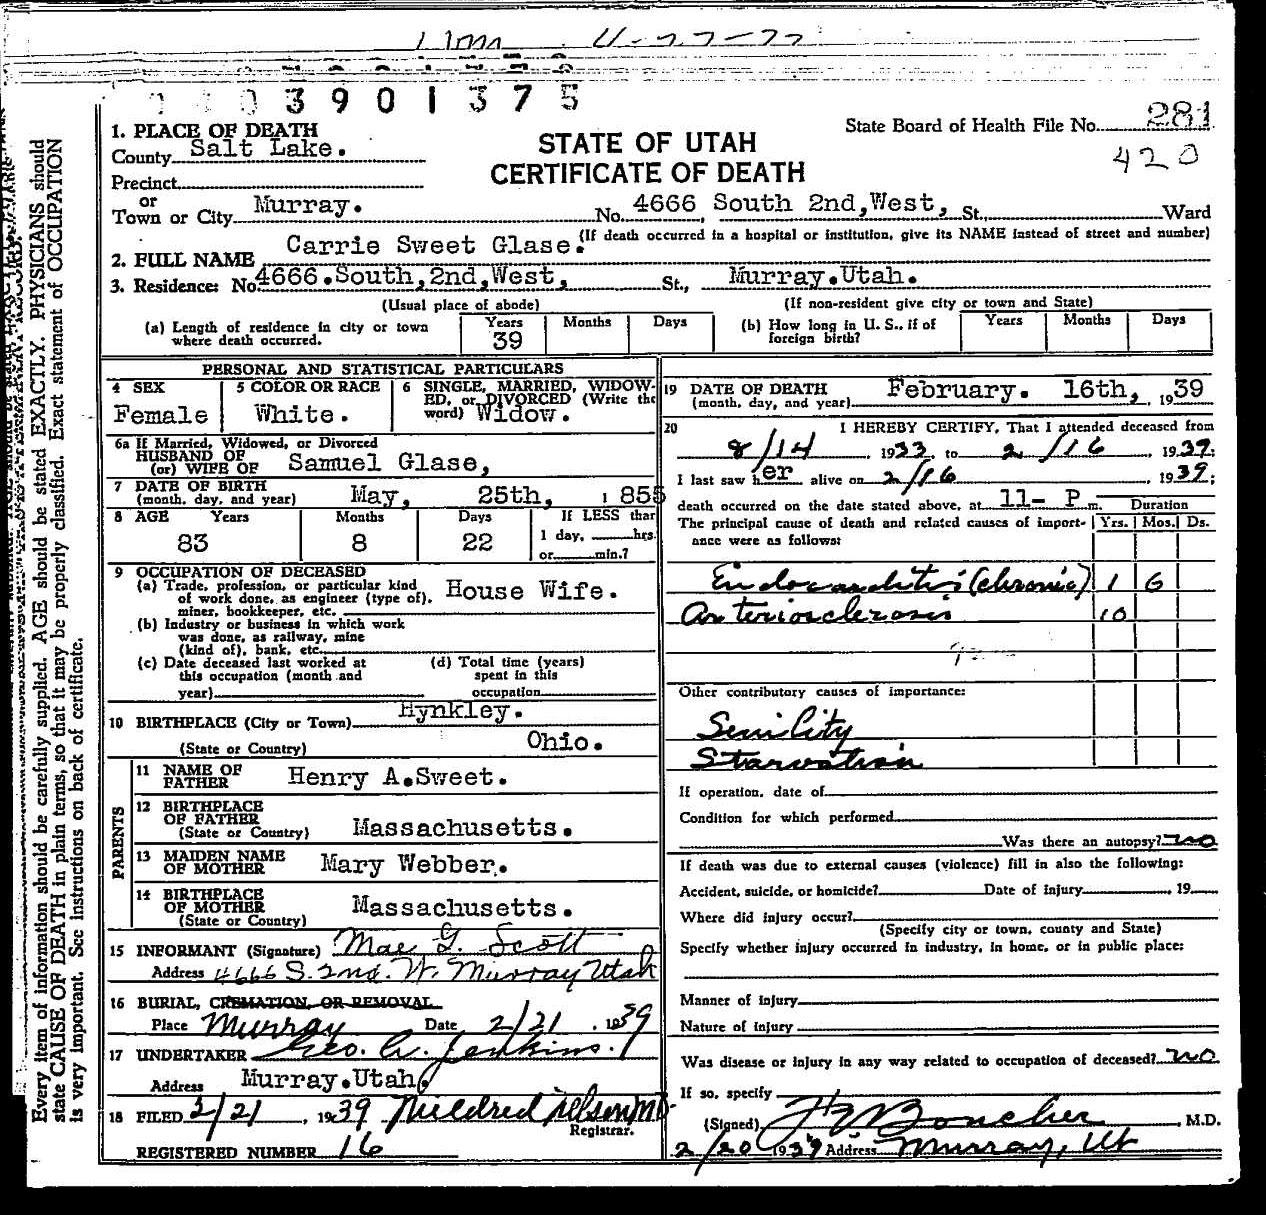 3901375
1. PLACE OF DEATH
County Salt Lake.
STATE OF UTAH
CERTIFICATE OF DEATH
State Board of Health File No. 281
420
Precinct
or
Town or City Murray. No. 4666 South 2nd, West, St., Ward
(If death occurred in a hospital or institution, give its NAME instead of street and number)
2. FULL NAME Carrie Sweet Glase.
3. Residence: No 4666.South,2nd,West, St., Murray.Utah.
(Usual place of abode) (If non-resident give city or town and State)
(a) Length of residence in city or town where death occurred. Years 39 Months Days
(b) How long in U. S., if of foreign birth? Years Months Days
PERSONAL AND STATISTICAL PARTICULARS
4 SEX Female
5 COLOR OR RACE White.
6 SINGLE, MARRIED, WIDOW-
ED, or DIVORCED (Write the
word) Widow.
6a If Married, Widowed, or Divorced
HUSBAND OF
(or) WIFE OF Samuel Glase,
7 DATE OF BIRTH
(month, day, and year) May, 25th, 1855
8 AGE Years Months Days If LESS than
83 8 22 1 day, hrs.
or min.?
9 OCCUPATION OF DECEASED
(a) Trade, profession, or particular kind
of work done, as engineer (type of), House Wife.
miner, bookkeeper, etc.
(b) Industry or business in which work
was done, as railway, mine
(kind of), bank, etc.
(c) Date deceased last worked at
this occupation (month and
year)
(d) Total time (years)
spent in this
occupation
10 BIRTHPLACE (City or Town) Hynkley.
(State or Country) Ohio.
PARENTS
11 NAME OF
FATHER Henry A.Sweet.
12 BIRTHPLACE
OF FATHER
(State or Country) Massachusetts.
13 MAIDEN NAME
OF MOTHER Mary Webber.
14 BIRTHPLACE
OF MOTHER Massachusetts.
(State or Country)
15 INFORMANT (Signature) Mae G. Scott
Address 4666 S. 2nd. W. Murray Utah
16 BURIAL, CREMATION, OR REMOVAL
Place Murray Date 2/21, 1939
17 UNDERTAKER Geo. W. Jenkins.
Address Murray.Utah.
18 FILED 2/21, 1939 Mildred Nelson MD
Registrar.
REGISTERED NUMBER 16
19 DATE OF DEATH
(month, day, and year) February. 16th, 1939
20 I HEREBY CERTIFY, That I attended deceased from
8/14, 1933, to 2/16, 1939;
I last saw her alive on 2/16, 1939;
death occurred on the date stated above, at 11- P m. Duration
The principal cause of death and related causes of import-
ance were as follows: Yrs. Mos. Ds.
Endocarditis (chronic) 1 6
Arteriosclerosis 10
Other contributory causes of importance:
Senility
Starvation
If operation, date of
Condition for which performed
Was there an autopsy? no
If death was due to external causes (violence) fill in also the following:
Accident, suicide, or homicide? Date of injury, 19
Where did injury occur?
(Specify city or town, county and State)
Specify whether injury occurred in industry, in home, or in public place:
Manner of injury
Nature of injury
Was disease or injury in any way related to occupation of deceased? no
If so, specify
(Signed) Boucher, M.D.
2/20 1939 Address Murray, Ut
Every item of information should be carefully supplied. AGE should be stated EXACTLY. PHYSICIANS should
state CAUSE OF DEATH in plain terms, so that it may be properly classified. Exact statement of OCCUPATION
is very important. See instructions on back of certificate.